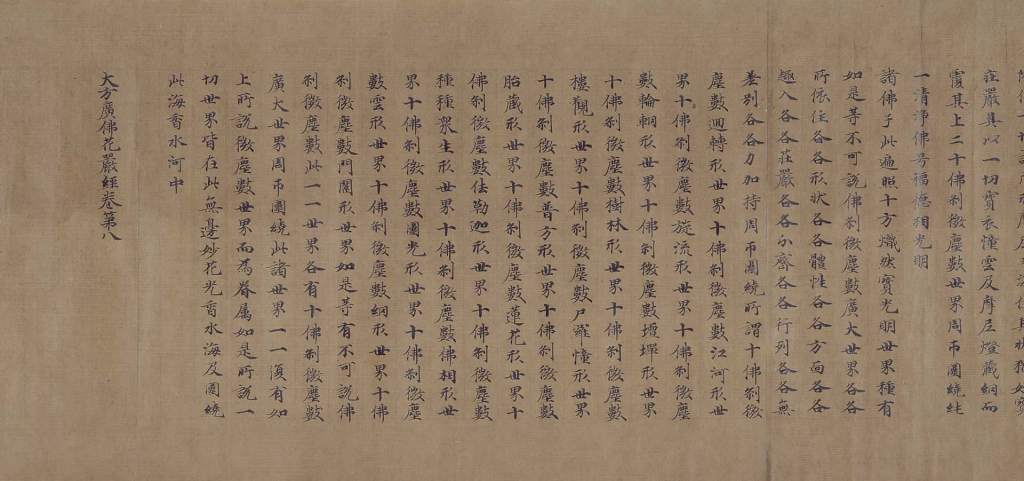 在嚴具以一切寶衣幢雲及摩尼燈藏網而
覆其上二十佛刹微塵數世界周帀圍繞純
一清淨佛号福德相光明
諸佛子此遍照十方熾然寶光明世界種有
如是等不可說佛刹微塵數廣大世界各各
所依住各各形狀各各體性各各方面各各
趣入各各莊嚴各各分齊各各行列各各無
差別各各力加持周帀圍繞所謂十佛刹微
塵數迴轉形世界十佛刹微塵數江河形世
界十佛刹微塵數旋流形世界十佛刹微塵
數輪輞形世界十佛刹微塵數壇墠形世界
十佛刹微塵數樹林形世界十佛刹微塵數
樓觀形世界十佛刹微塵數尸羅幢形世界
十佛刹微塵數普方形世界十佛刹微塵數
胎藏形世界十佛刹微塵數蓮花形世界十
佛刹微塵數佉勒迦形世界十佛刹微塵數
種種眾生形世界十佛刹微塵數佛相形世
界十佛刹微塵數圓光形世界十佛刹微塵
數雲形世界十佛刹微塵數網形世界十佛
刹微塵數門闥形世界如是等有不可說佛
刹微塵數此一一世界各有十佛刹微塵數
廣大世界周帀圍繞此諸世界一一復有如
上所說微塵數世界而為眷屬如是所說一
切世界皆在此無邊妙花光香水海及圍繞
此海香水河中
大方廣佛花嚴經卷第八